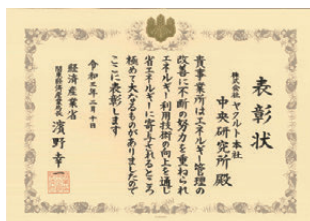 表彰状
株式会社ヤクルト本社
中央研究所 殿
貴事業所はエネルギー管理の
改善に不断の努力を重ねられ
エネルギー利用技術の向上を通じ
省エネルギーに寄与されるところ
極めて大なるものがありましたので
ここに表彰します
令和三年二月十日
経済産業省
関東経済産業局長 濱野幸一